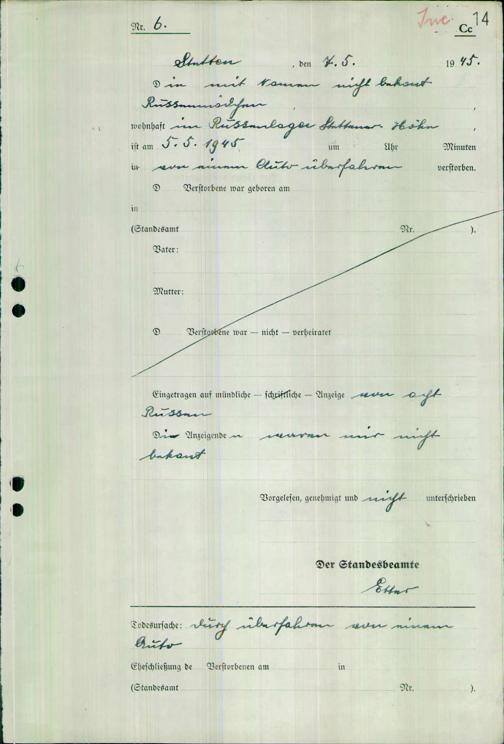 Inc. 14
Nr. 6. Cc
Stetten, den 7. 5. 1945.
Die mit Namen nicht bekant
Russenmädchen,
wohnhaft im Russenlager Stettener Höhe,
ist am 5. 5. 1945 um Uhr Minuten
in von einem Auto überfahren verstorben.
D Verstorbene war geboren am
in
(Standesamt Nr. ).
Vater:
Mutter:
D Verstorbene war — nicht — verheiratet
Eingetragen auf mündliche — schriftliche — Anzeige von acht
Russen
Die Anzeigenden waren mir nicht
bekant
Vorgelesen, genehmigt und nicht unterschrieben
Der Standesbeamte
Etter
Todesursache: durch überfahren von einem
Auto
Eheschließung de Verstorbenen am in
(Standesamt Nr. ).